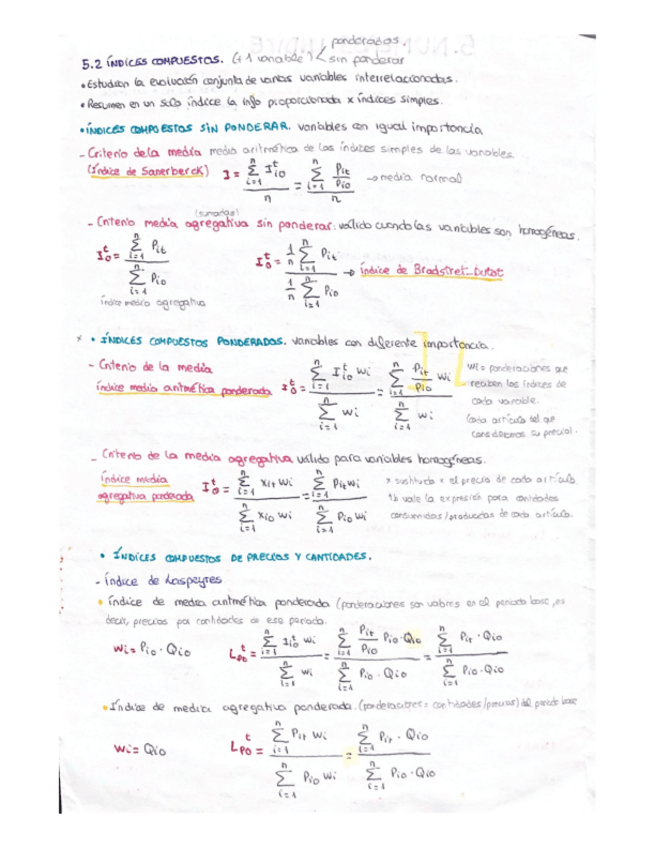 ponderadas.
5.2 ÍNDICES COMPUESTOS. (+1 variable) < sin ponderar
• Estudian la evolución conjunta de varias variables interrelacionadas.
• Resumen en un solo índice la info proporcionada x índices simples.
• ÍNDICES COMPUESTOS SIN PONDERAR. variables con igual importancia
- Criterio de la media media aritmética de los índices simples de las variables
(Índice de Sauerberck) I = Σ(i=1..n) I_i0^t / n = Σ(i=1..n) (Pit/Pio) / n → media normal
(sumadas)
- Criterio media agregativa sin ponderar: válido cuando las variables son homogéneas.
I_0^t = Σ(i=1..n) Pit / Σ(i=1..n) Pio
I_0^t = (1/n Σ(i=1..n) Pit) / (1/n Σ(i=1..n) Pio) → índice de Bradstret-Dutot
índice medio agregativa
x • ÍNDICES COMPUESTOS PONDERADOS. variables con diferente importancia.
- Criterio de la media
índice media aritmética ponderada I_0^t = Σ(i=1..n) I_i0^t wi / Σ(i=1..n) wi = Σ(i=1..n) (Pit/Pio) wi / Σ(i=1..n) wi
wi = ponderaciones que
reciben los índices de
cada variable.
(cada artículo del que
consideramos su precio).
- Criterio de la media agregativa válido para variables homogéneas.
Índice media
agregativa ponderada I_0^t = Σ(i=1..n) xit wi / Σ(i=1..n) xio wi = Σ(i=1..n) Pit wi / Σ(i=1..n) Pio wi
x sustituida x el precio de cada artículo.
tb vale la expresión para cantidades
consumidas/producidas de cada artículo.
• ÍNDICES COMPUESTOS DE PRECIOS Y CANTIDADES.
- Índice de Laspeyres
• índice de media aritmética ponderada (ponderaciones son valores en el periodo base, es
decir, precios por cantidades de ese periodo.
wi = Pio · Qio
L_P0^t = Σ(i=1..n) I_i0^t wi / Σ(i=1..n) wi = Σ(i=1..n) (Pit/Pio) Pio·Qio / Σ(i=1..n) Pio · Qio = Σ(i=1..n) Pit · Qio / Σ(i=1..n) Pio · Qio
• Índice de media agregativa ponderada. (ponderaciones = cantidades/precios) del periodo base
wi = Qio
L_P0^t = Σ(i=1..n) Pit wi / Σ(i=1..n) Pio wi = Σ(i=1..n) Pit · Qio / Σ(i=1..n) Pio · Qio